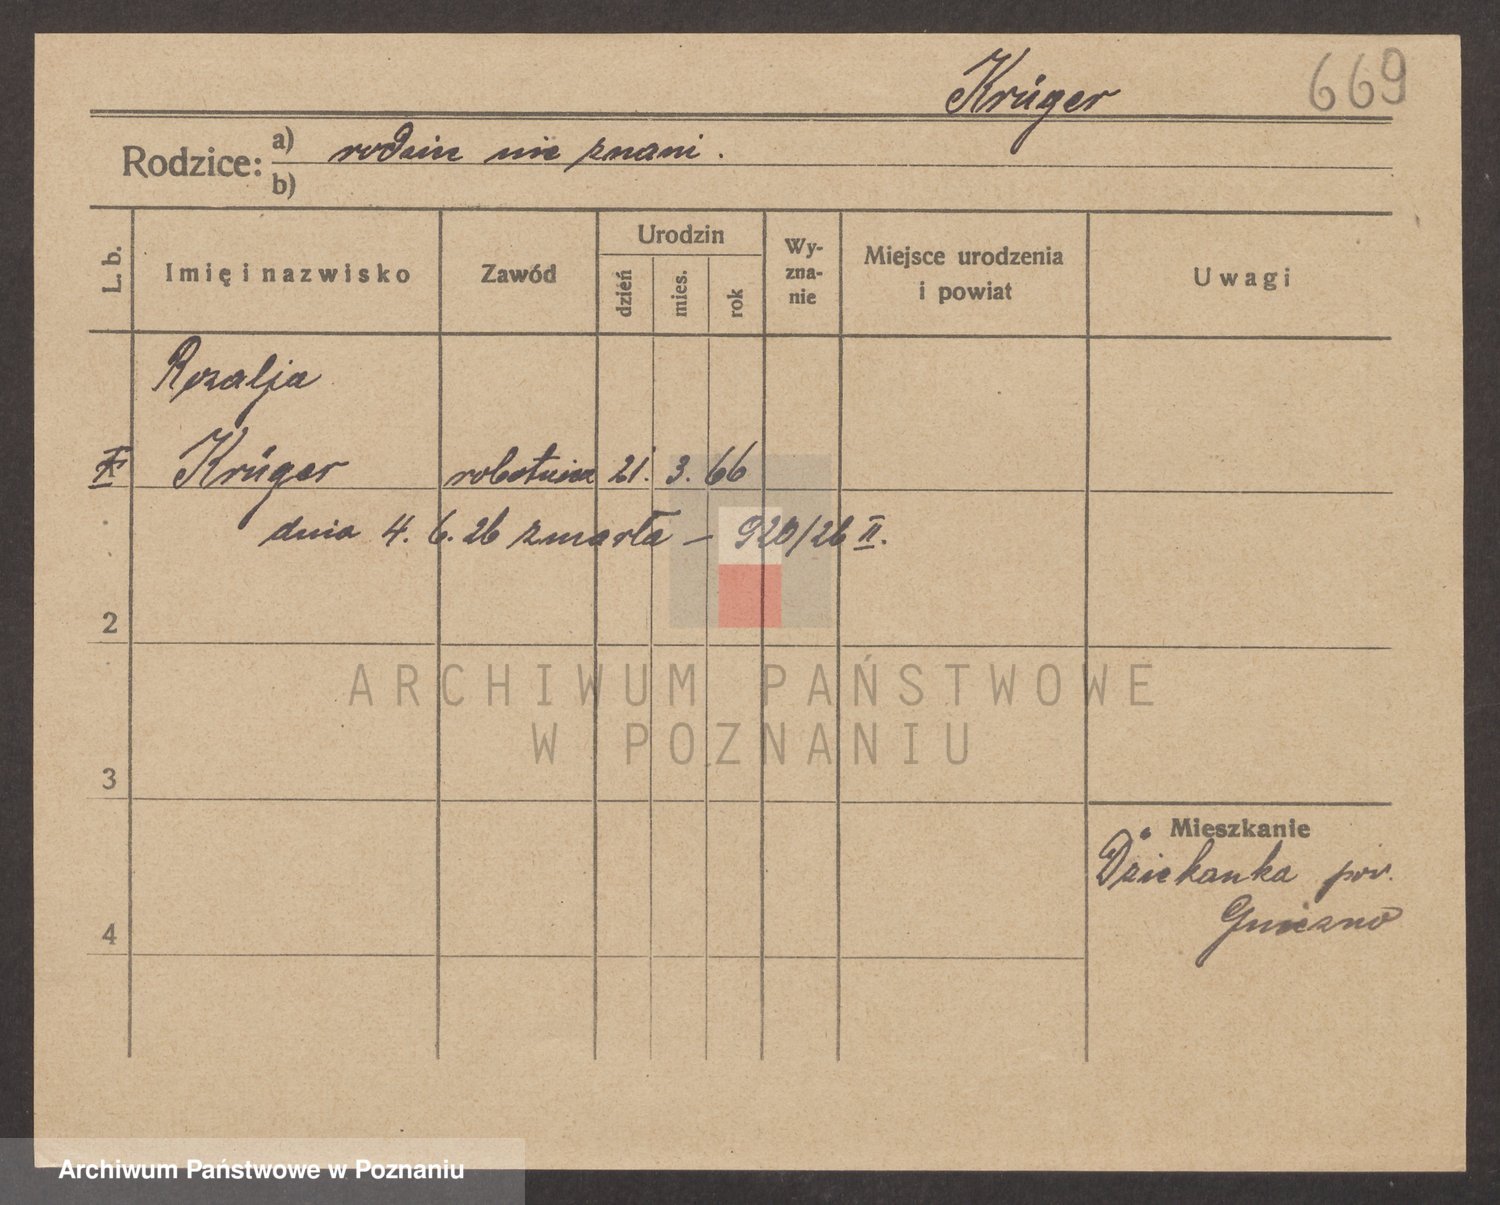 Krüger 669
Rodzice: a) rodzice nie znani.
b)
L. b. Imię i nazwisko Zawód Urodzin dzień mies. rok Wy-zna-nie Miejsce urodzenia i powiat Uwagi
Rozalja
Krüger robotnica 21. 3. 66
dnia 4. 6. 26 zmarła – 920/26 II.
2
ARCHIWUM PAŃSTWOWE
W POZNANIU
3
Mieszkanie
Dziekanka pow.
Gniezno
4
Archiwum Państwowe w Poznaniu